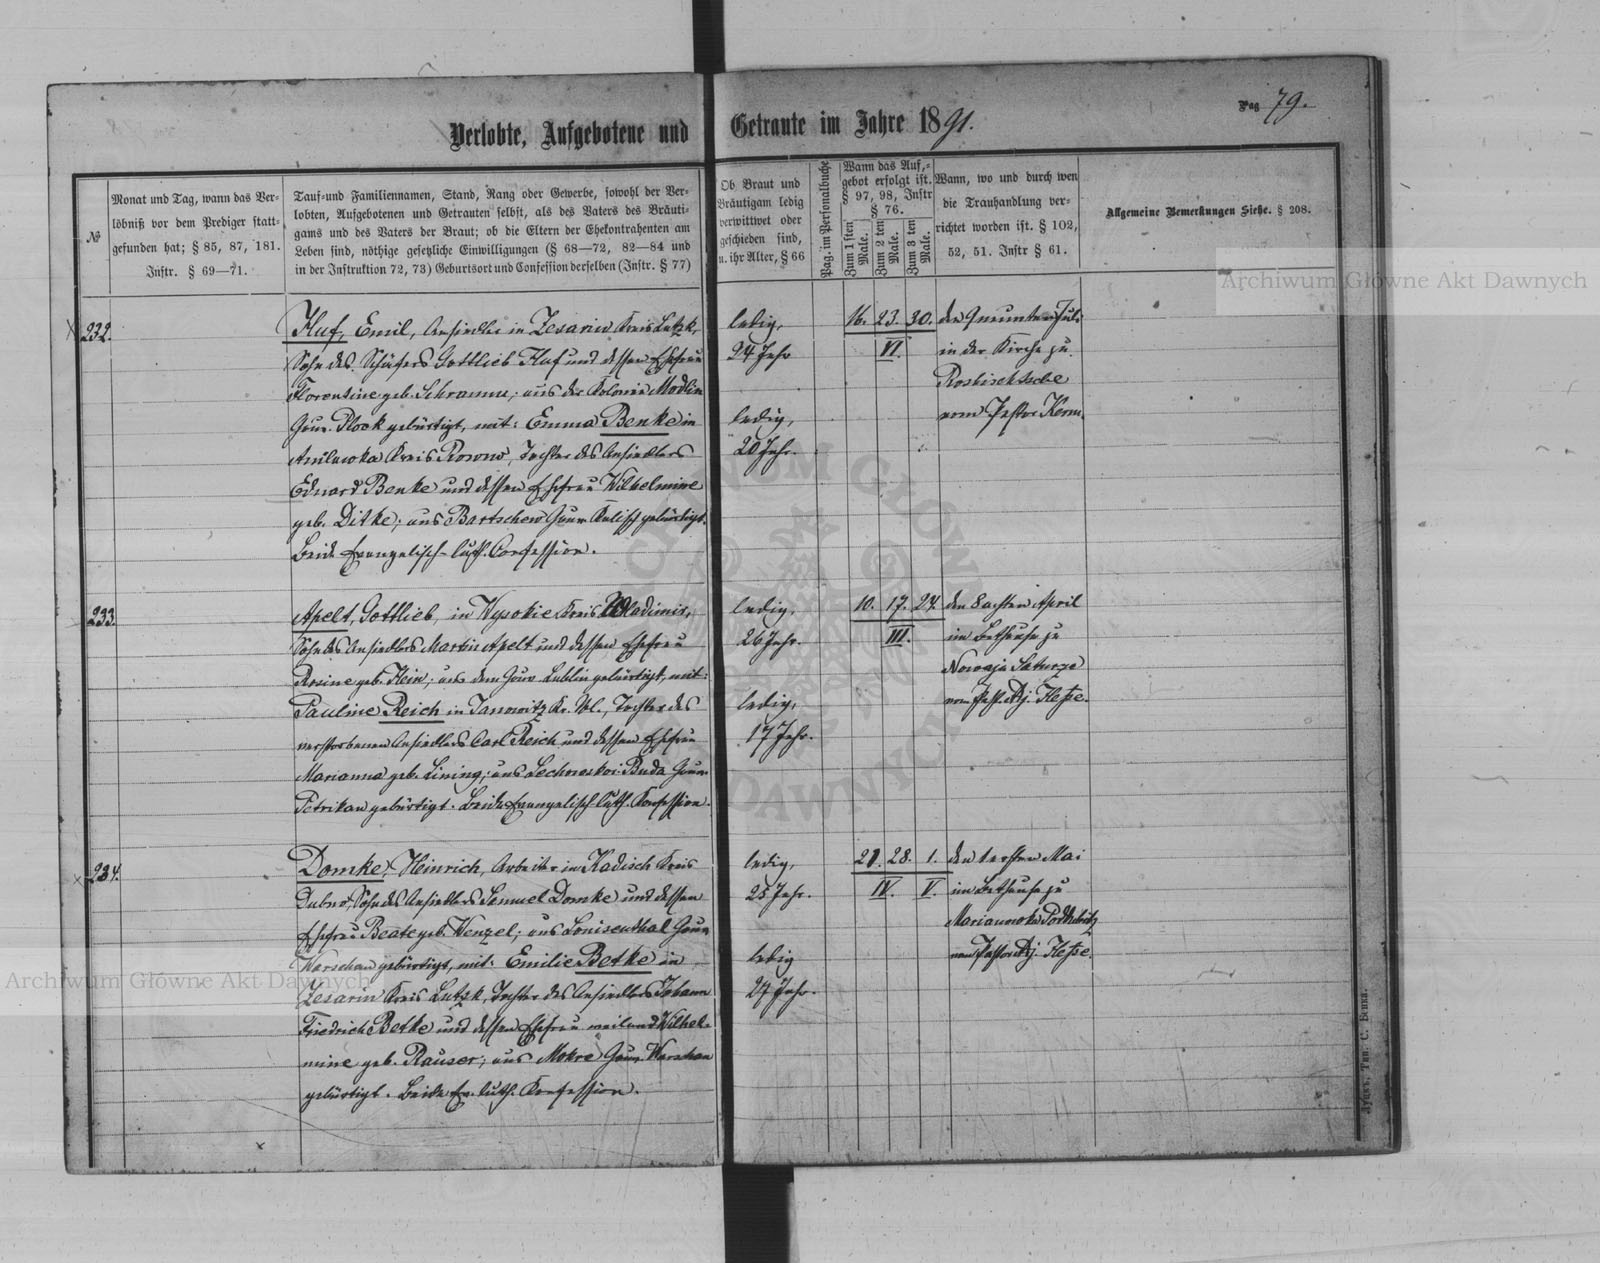 Pag 79.
Verlobte, Aufgebotene und Getraute im Jahre 1891.
№
Monat und Tag, wann das Ver-
löbniß vor dem Prediger statt-
gefunden hat; § 85, 87, 181.
Instr. § 69—71.
Tauf- und Familiennamen, Stand, Rang oder Gewerbe, sowohl der Ver-
lobten, Aufgebotenen und Getrauten selbst, als des Vaters des Bräuti-
gams und des Vaters der Braut; ob die Eltern der Ehekontrahenten am
Leben sind, nöthige gesetzliche Einwilligungen (§ 68—72, 82—84 und
in der Instruktion 72, 73) Geburtsort und Confession derselben (Instr. § 77)
Ob Braut und
Bräutigam ledig
verwittwet oder
geschieden sind,
u. ihr Alter, § 66
Pag. im Personalbuche
Wann das Auf-
gebot erfolgt ist.
§ 97, 98, Instr
§ 76.
Zum 1 sten
Male.
Zum 2 ten
Male.
Zum 3 ten
Male.
Wann, wo und durch wen
die Trauhandlung ver-
richtet worden ist. § 102,
52, 51. Instr § 61.
Allgemeine Bemerkungen Siehe. § 208.
232.
Huf, Emil, Ansiedler in Zesarin Kreis Lutzk,
Sohn des Schäfers Gottlieb Huf und dessen Ehefrau
Florentine geb. Schramm; aus der Kolonie Modlin
Gouv. Plock gebürtigt, mit: Emma Benke in
Kreis Rowno, Tochter des Ansiedlers
Eduard Benke und dessen Ehefrau Wilhelmine
geb. Ditke; aus Bartschew Gouv. Kalisch gebürtigt.
Beide Evangelisch-luth. Confession.
ledig,
24 Jahr
ledig,
20 Jahr.
16. 23. 30.
VI.
den Neunten Juli
in der Kirche zu
Roshischtsche
vom Pastor Kerm.
233.
Apelt, Gottlieb, in Wysokie Kreis Wladimir,
Sohn des Ansiedlers Martin Apelt und dessen Ehefrau
Rosine geb. Hein; aus dem Gouv. Lublin gebürtigt, mit:
Pauline Reich in Janowitz Kr. Wl., Tochter des
verstorbenen Ansiedlers Carl Reich und dessen Ehefrau
Marianna geb. Liming; aus Buda Gouv.
Petrikau gebürtigt. Beide Evangelisch-luth. Konfession.
ledig,
26 Jahr.
ledig,
17 Jahr.
10. 17. 24.
III.
den 8 achten April
im Bethause zu
Nowaja
vom Past. Adj. Hesse.
234.
Domke, Heinrich, Arbeiter in Kadisch Kreis
Dubno, Sohn des Ansiedlers Samuel Domke und dessen
Ehefrau Beate geb. Wenzel; aus Louisenthal Gouv.
Warschau gebürtigt, mit: Emilie Betke in
Zesarin Kreis Lutzk, Tochter des Ansiedlers Johann
Friedrich Betke und dessen Ehefrau weiland Wilhel-
mine geb. Rauser; aus Mokre Gouv. Warschau
gebürtigt. Beide Ev. luth. Konfession.
ledig,
25 Jahr.
ledig
27 Jahr.
21. 28. 1.
IV. V.
den 1 ersten Mai
im Bethause zu
Marianowka
vom Pastor Adj. Hesse.
Луцкъ, Тип. С. Бенка.
Archiwum Główne Akt Dawnych
Archiwum Główne Akt Dawnych
ARCHIWUM GŁÓWNE AKT DAWNYCH